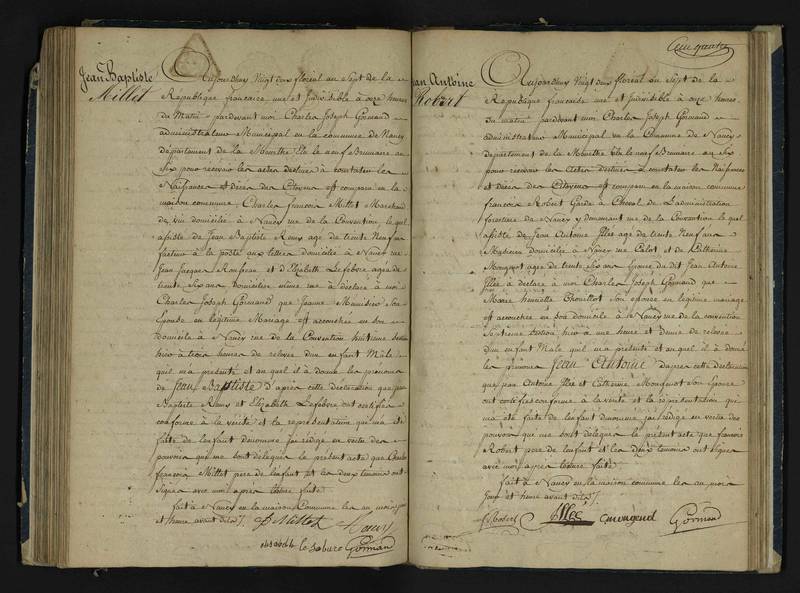 Jean Baptiste
Millet
Aujourdhuy Vingt deux floreal an Sept de la
Republique francaise une et Indivisible à onze heures
du Matin pardevant moi Charles Joseph Gormand
administrateur Municipal en la commune de Nancy
département de la Meurthe Elu le neuf Brumaire an
Six pour recevoir les actes destinés à constater les
Naissances et deces des Citoyens est comparu en la
maison commune, Charles francois Millet Marchand
de vin domicilié à Nancy rue de la Convention, lequel
assisté de Jean Baptiste Roux agé de trente Neuf ans
facteur à la poste aux lettres domicilié à Nancy rue
Jean Jacques Rousseau et d'Elizabeth Lefebvre agée de
trente Six ans domiciliée même rue à déclaré à moi
Charles Joseph Gormand que Jeanne Son
Epouse en legitime Mariage est accouchée en son
domicile à Nancy rue de la Convention huitieme Section
hier à trois heures de relevée d'un enfant Male
quil m'a présenté et auquel il à donné les prenoms
de Jean Baptiste d'après cette déclaration que jean
Baptiste Roux et Elizabeth Lefebvre ont certifiée
conforme à la vérité et la représentation qui m'a été
faite de l'enfant denommé jai rédigé en vertu des
pouvoirs qui me sont délégués le présent acte que Charles
francois Millet pere de lenfant et les deux temoins ont
signé avec moi après lecture faite
fait à Nancy en la maison Commune les an mois jour
et heure avant dits
Millet Roux
Elisabeth le fabure Gormand
Jean Antoine
Robert
Aujourdhuy Vingt deux floreal an Sept de la
Republique francaise une et Indivisible à onze heures
du matin pardevant moi Charles Joseph Gormand
administrateur Municipal en la Commune de Nancy
département de la Meurthe Elu le neuf Brumaire an Six
pour recevoir les Actes destinés à constater les Naissances
et deces des Citoyens est comparu en la maison commune
francois Robert Garde à Cheval de L'administration
forestiere de Nancy y demeurant rue de la Convention lequel
assisté de Jean Antoine Illée agé de trente Neuf ans
Musicien domicilié à Nancy rue Calot et de Catherine
agée de trente Six ans Epouse du dit Jean Antoine
Illée à déclaré à moi Charles Joseph Gormand que
Marie henriette Son epouse en legitime mariage
est accouchée en son domicile à Nancy rue de la convention
Septieme Section hier à une heure et Demie de relevée
d'un enfant Male quil m'a présenté et auquel il à donné
les prenoms Jean Antoine d'apres cette déclaration
que jean Antoine Illée et Catherine son Epouse
ont certifiés conforme à la vérité et la représentation qui
m'a été faite de lenfant denommé jai rédigé en vertu des
pouvoirs qui me sont délégués le présent acte que francois
Robert pere de lenfant et les deux temoins ont signés
avec moi après lecture faite
fait à Nancy en la maison commune les an mois
jour et heure avant dits
f Robert Illée Gormand